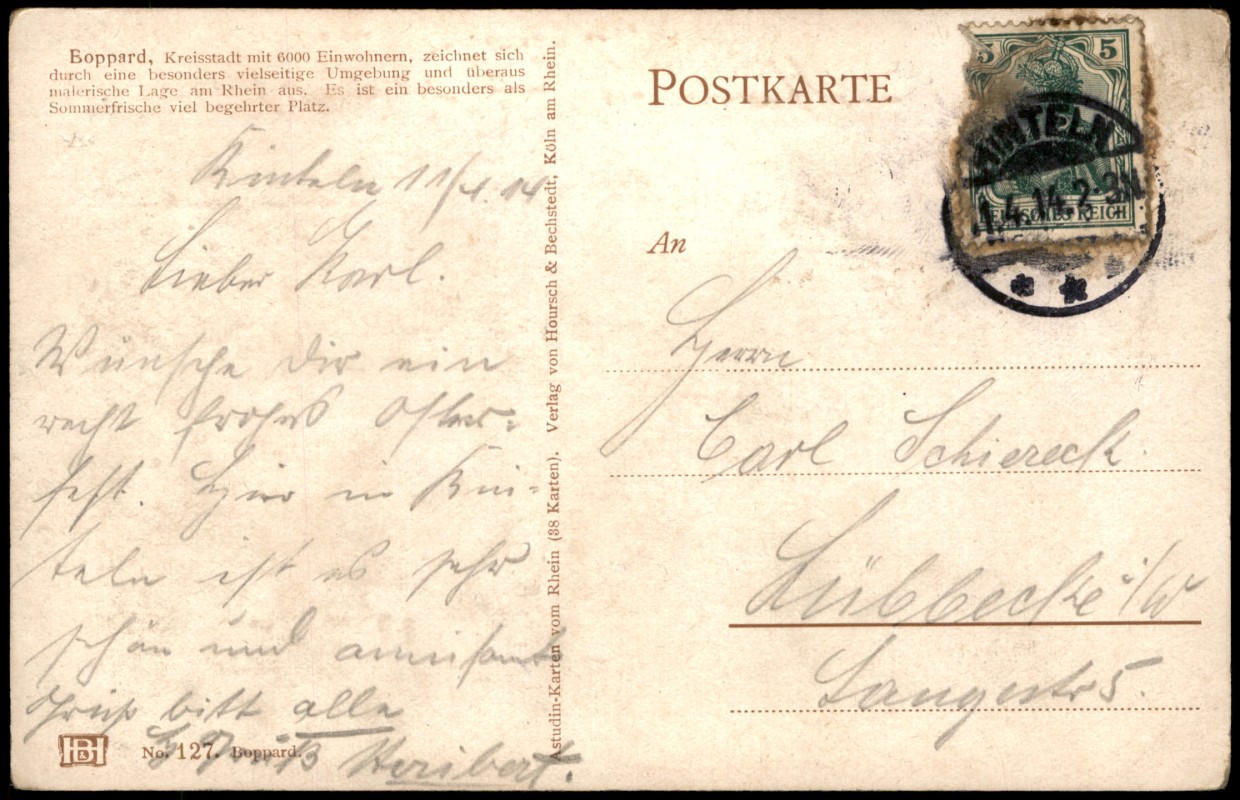 Boppard, Kreisstadt mit 6000 Einwohnern, zeichnet sich
durch eine besonders vielseitige Umgebung und überaus
malerische Lage am Rhein aus. Es ist ein besonders als
Sommerfrische viel begehrter Platz.
Rinteln 11/4.14
Lieber Karl.
Wünsche Dir ein
recht frohes Oster-
fest. Hier in Rin-
teln ist es sehr
schön und amüsant
Grüß bitt alle
Heribert.
HB&
No. 127. Boppard.
Astudin-Karten vom Rhein (38 Karten). Verlag von Hoursch & Bechstedt, Köln am Rhein.
POSTKARTE
5 5
DEUTSCHES REICH
RINTELN
1.4.14.2-3N
An
Herrn
Carl Schiereck.
Lübbecke i/W
Langestr 5.